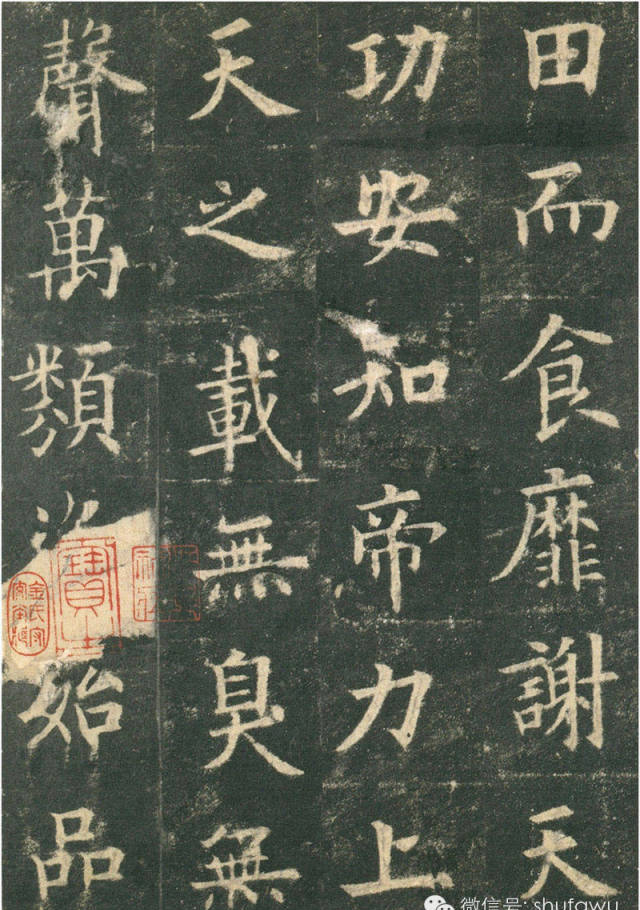 田而食靡謝天
功安知帝力上
天之載無臭無
聲萬類始品
微信号: shufawu